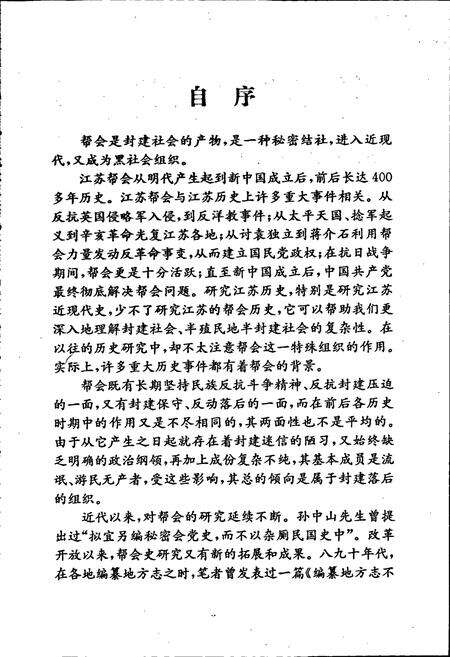 自序
帮会是封建社会的产物,是一种秘密结社,进入近现
代,又成为黑社会组织。
江苏帮会从明代产生起到新中国成立后,前后长达400
多年历史。江苏帮会与江苏历史上许多重大事件相关。从
反抗英国侵略军入侵,到反洋教事件;从太平天国、捻军起
义到辛亥革命光复江苏各地;从讨袁独立到蒋介石利用帮
会力量发动反革命事变,从而建立国民党政权;在抗日战争
期间,帮会更是十分活跃;直至新中国成立后,中国共产党
最终彻底解决帮会问题。研究江苏历史,特别是研究江苏
近现代史,少不了研究江苏的帮会历史,它可以帮助我们更
深入地理解封建社会、半殖民地半封建社会的复杂性。在
以往的历史研究中,却不太注意帮会这一特殊组织的作用。
实际上,许多重大历史事件都有着帮会的背景。
帮会既有长期坚持民族反抗斗争精神、反抗封建压迫
的一面,又有封建保守、反动落后的一面,而在前后各历史
时期中的作用又是不尽相同的,其两面性也不是平均的。
由于从它产生之日起就存在着封建迷信的陋习,又始终缺
乏明确的政治纲领,再加上成份复杂不纯,其基本成员是流
氓、游民无产者,受这些影响,其总的倾向是属于封建落后
的组织。
近代以来,对帮会的研究延续不断。孙中山先生曾提
出过“拟宜另编秘密会党史,而不以杂厕民国史中”。改革
开放以来,帮会史研究又有新的拓展和成果。八九十年代,
在各地编纂地方志之时,笔者曾发表过一篇《编纂地方志不